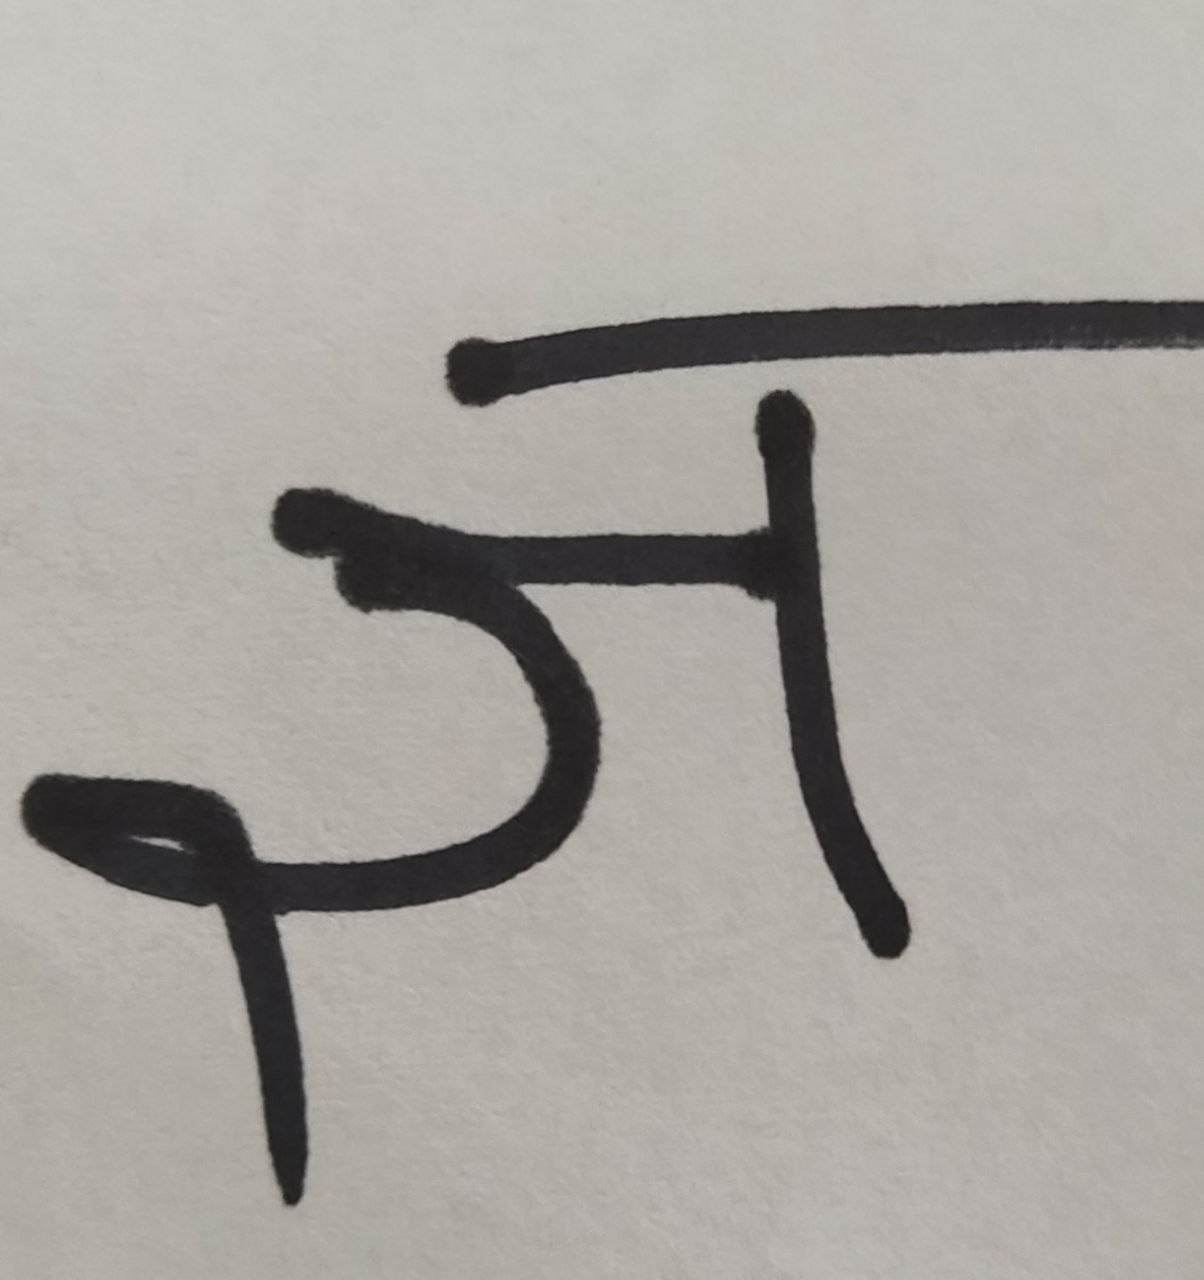 ज्ञ